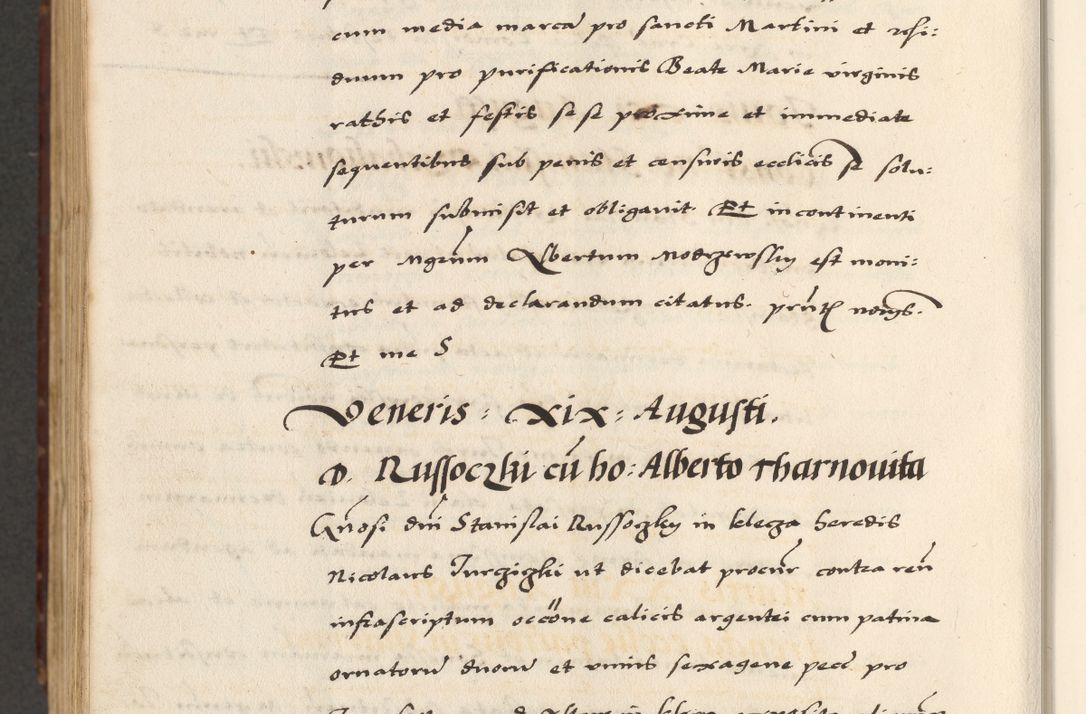 cum media marca pro sancti Martini et resi:
duum pro purificationis Beate Marie virginis
rathis et festis se se proxime et immediate
sequentibus sub penis et censuris ecclicis se solu:
turum submisit et obligavit Et incontinenti
per Mgrum Albertum Modrzewsky est moni:
tus et ad declarandum citatus. prnt notis.
Et me S
Veneris : xix : Augusti.
D. Russoczki cu ho: Alberto Tharnovita
Gnosi dni Stanislai Russoczky in klecza heredis
Nicolaus Jurczizki ut dicebat procur contra reu
infrascriptum occone calicis argentei cum patina
ornatoru duoru et unius sexagene pecc pro